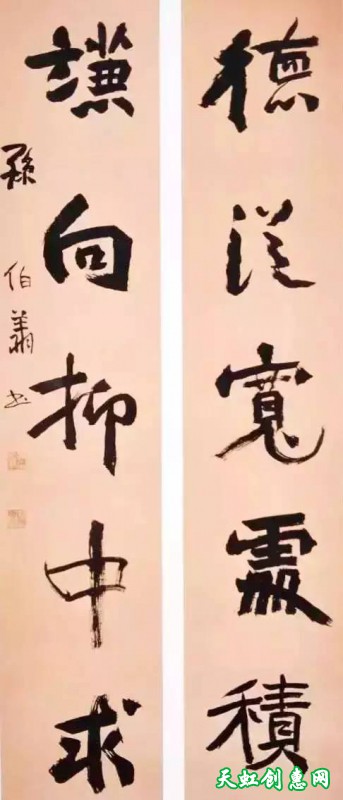 德從寬處積
謙向抑中求
孫伯翔书
天虹创惠网